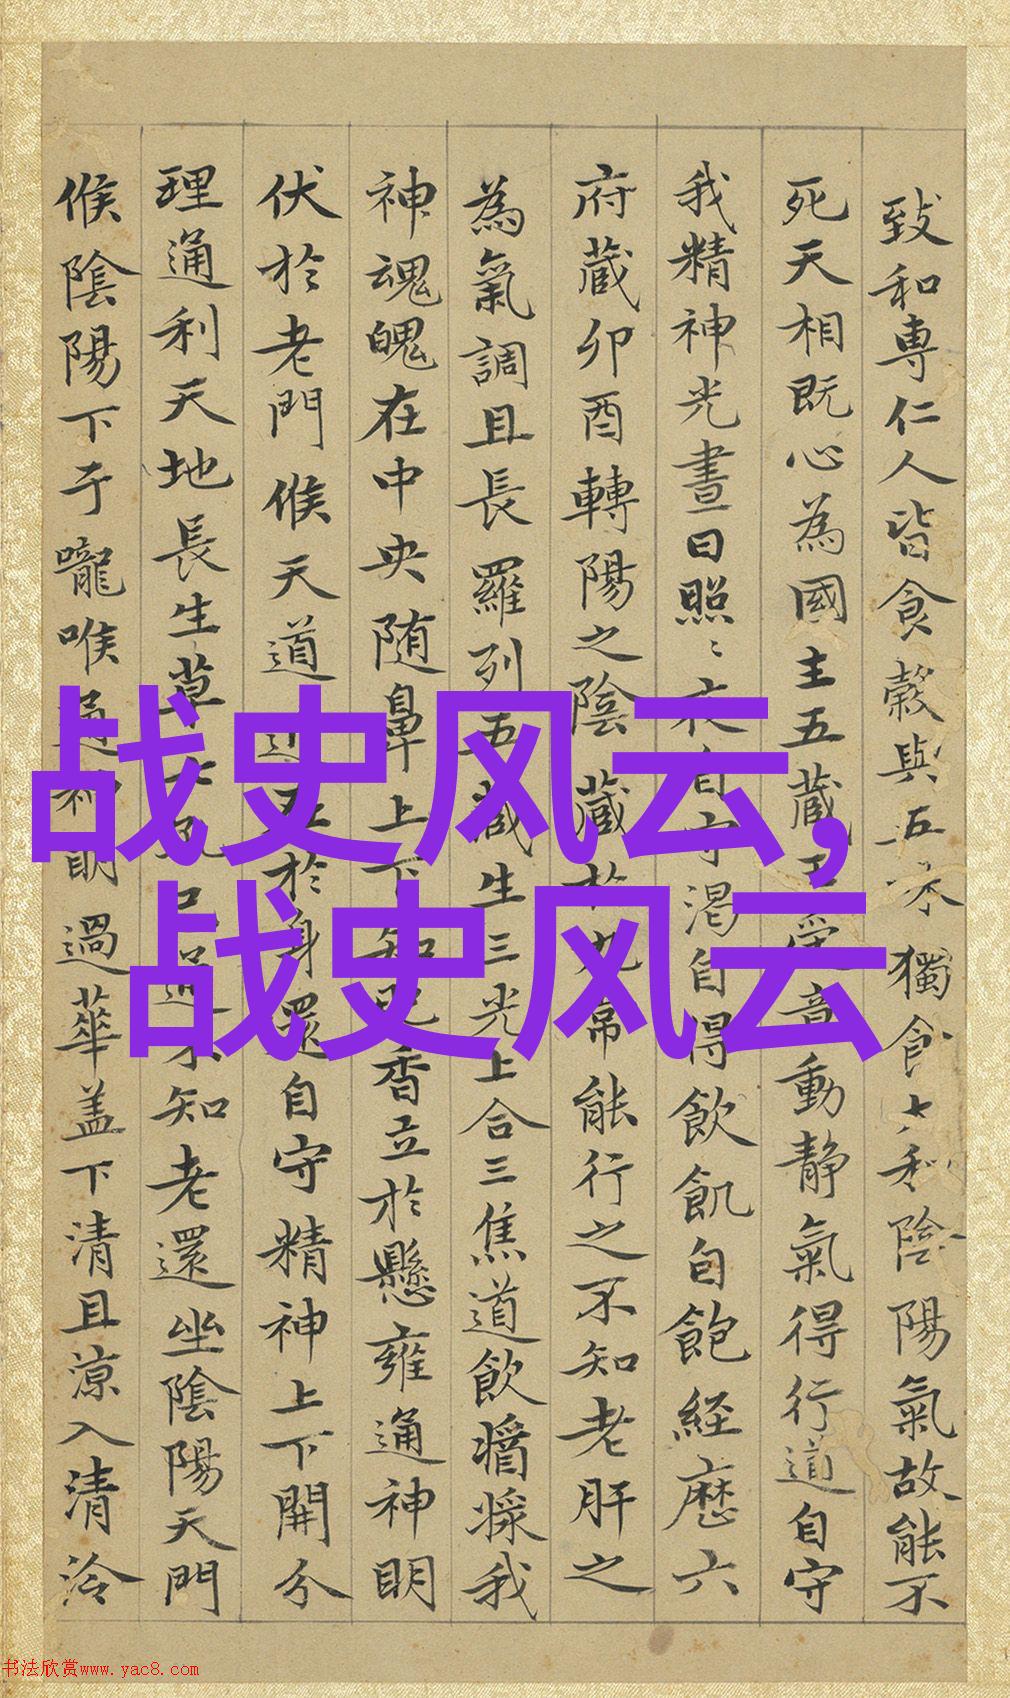 致和専仁人皆食穀與五味獨食太和陰陽氣故能不
死天相既心為國主五藏王受意動静氣得行道自守
我精神光晝日照〻夜自守渇自得飲飢自飽経歷六
府藏卯酉轉陽之陰藏於九常能行之不知老肝之
為氣調且長羅列五藏生三光上合三焦道飲醬漿我
神魂魄在中央随鼻上下知肥香立於懸雍通神明
伏於老門候天道近在於身還自守精神上下開分
理通利天地長生草七孔已通不知老還坐陰陽天門
候陰陽下于嚨喉通神明過華盖下清且涼入清泠
战史风云,
战史风云
书法欣赏www.yac8.com